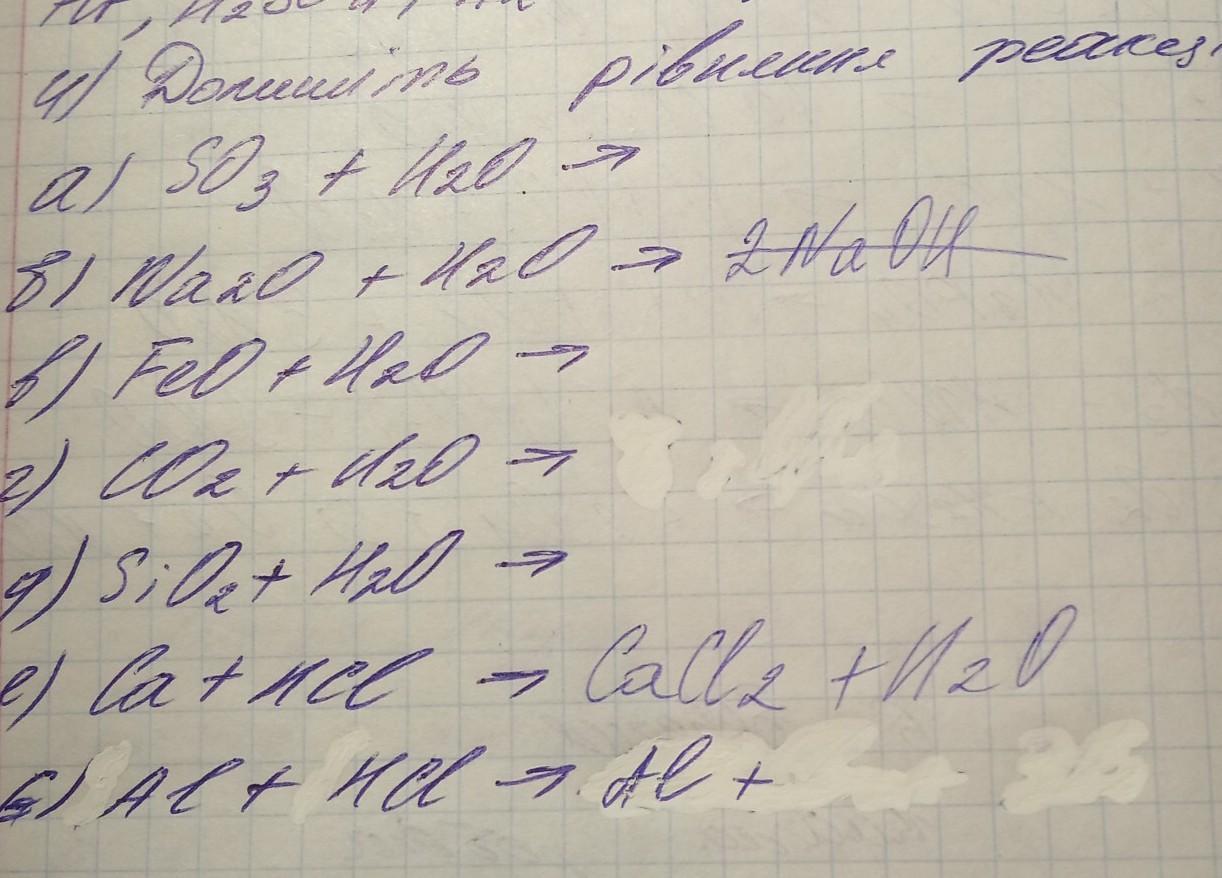 4) Допишіть рівняння реакц
а) SO3 + H2O →
б) Na2O + H2O → 2NaOH
в) FeO + H2O →
г) CO2 + H2O →
д) SiO2 + H2O →
е) Ca + HCl → CaCl2 + H2O
є) Al + HCl → Al +